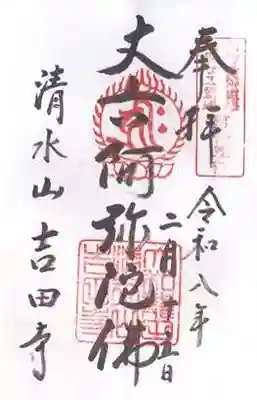 奉拝
令和八年
二月十五日
丈六阿弥陀佛
清水山 吉田寺